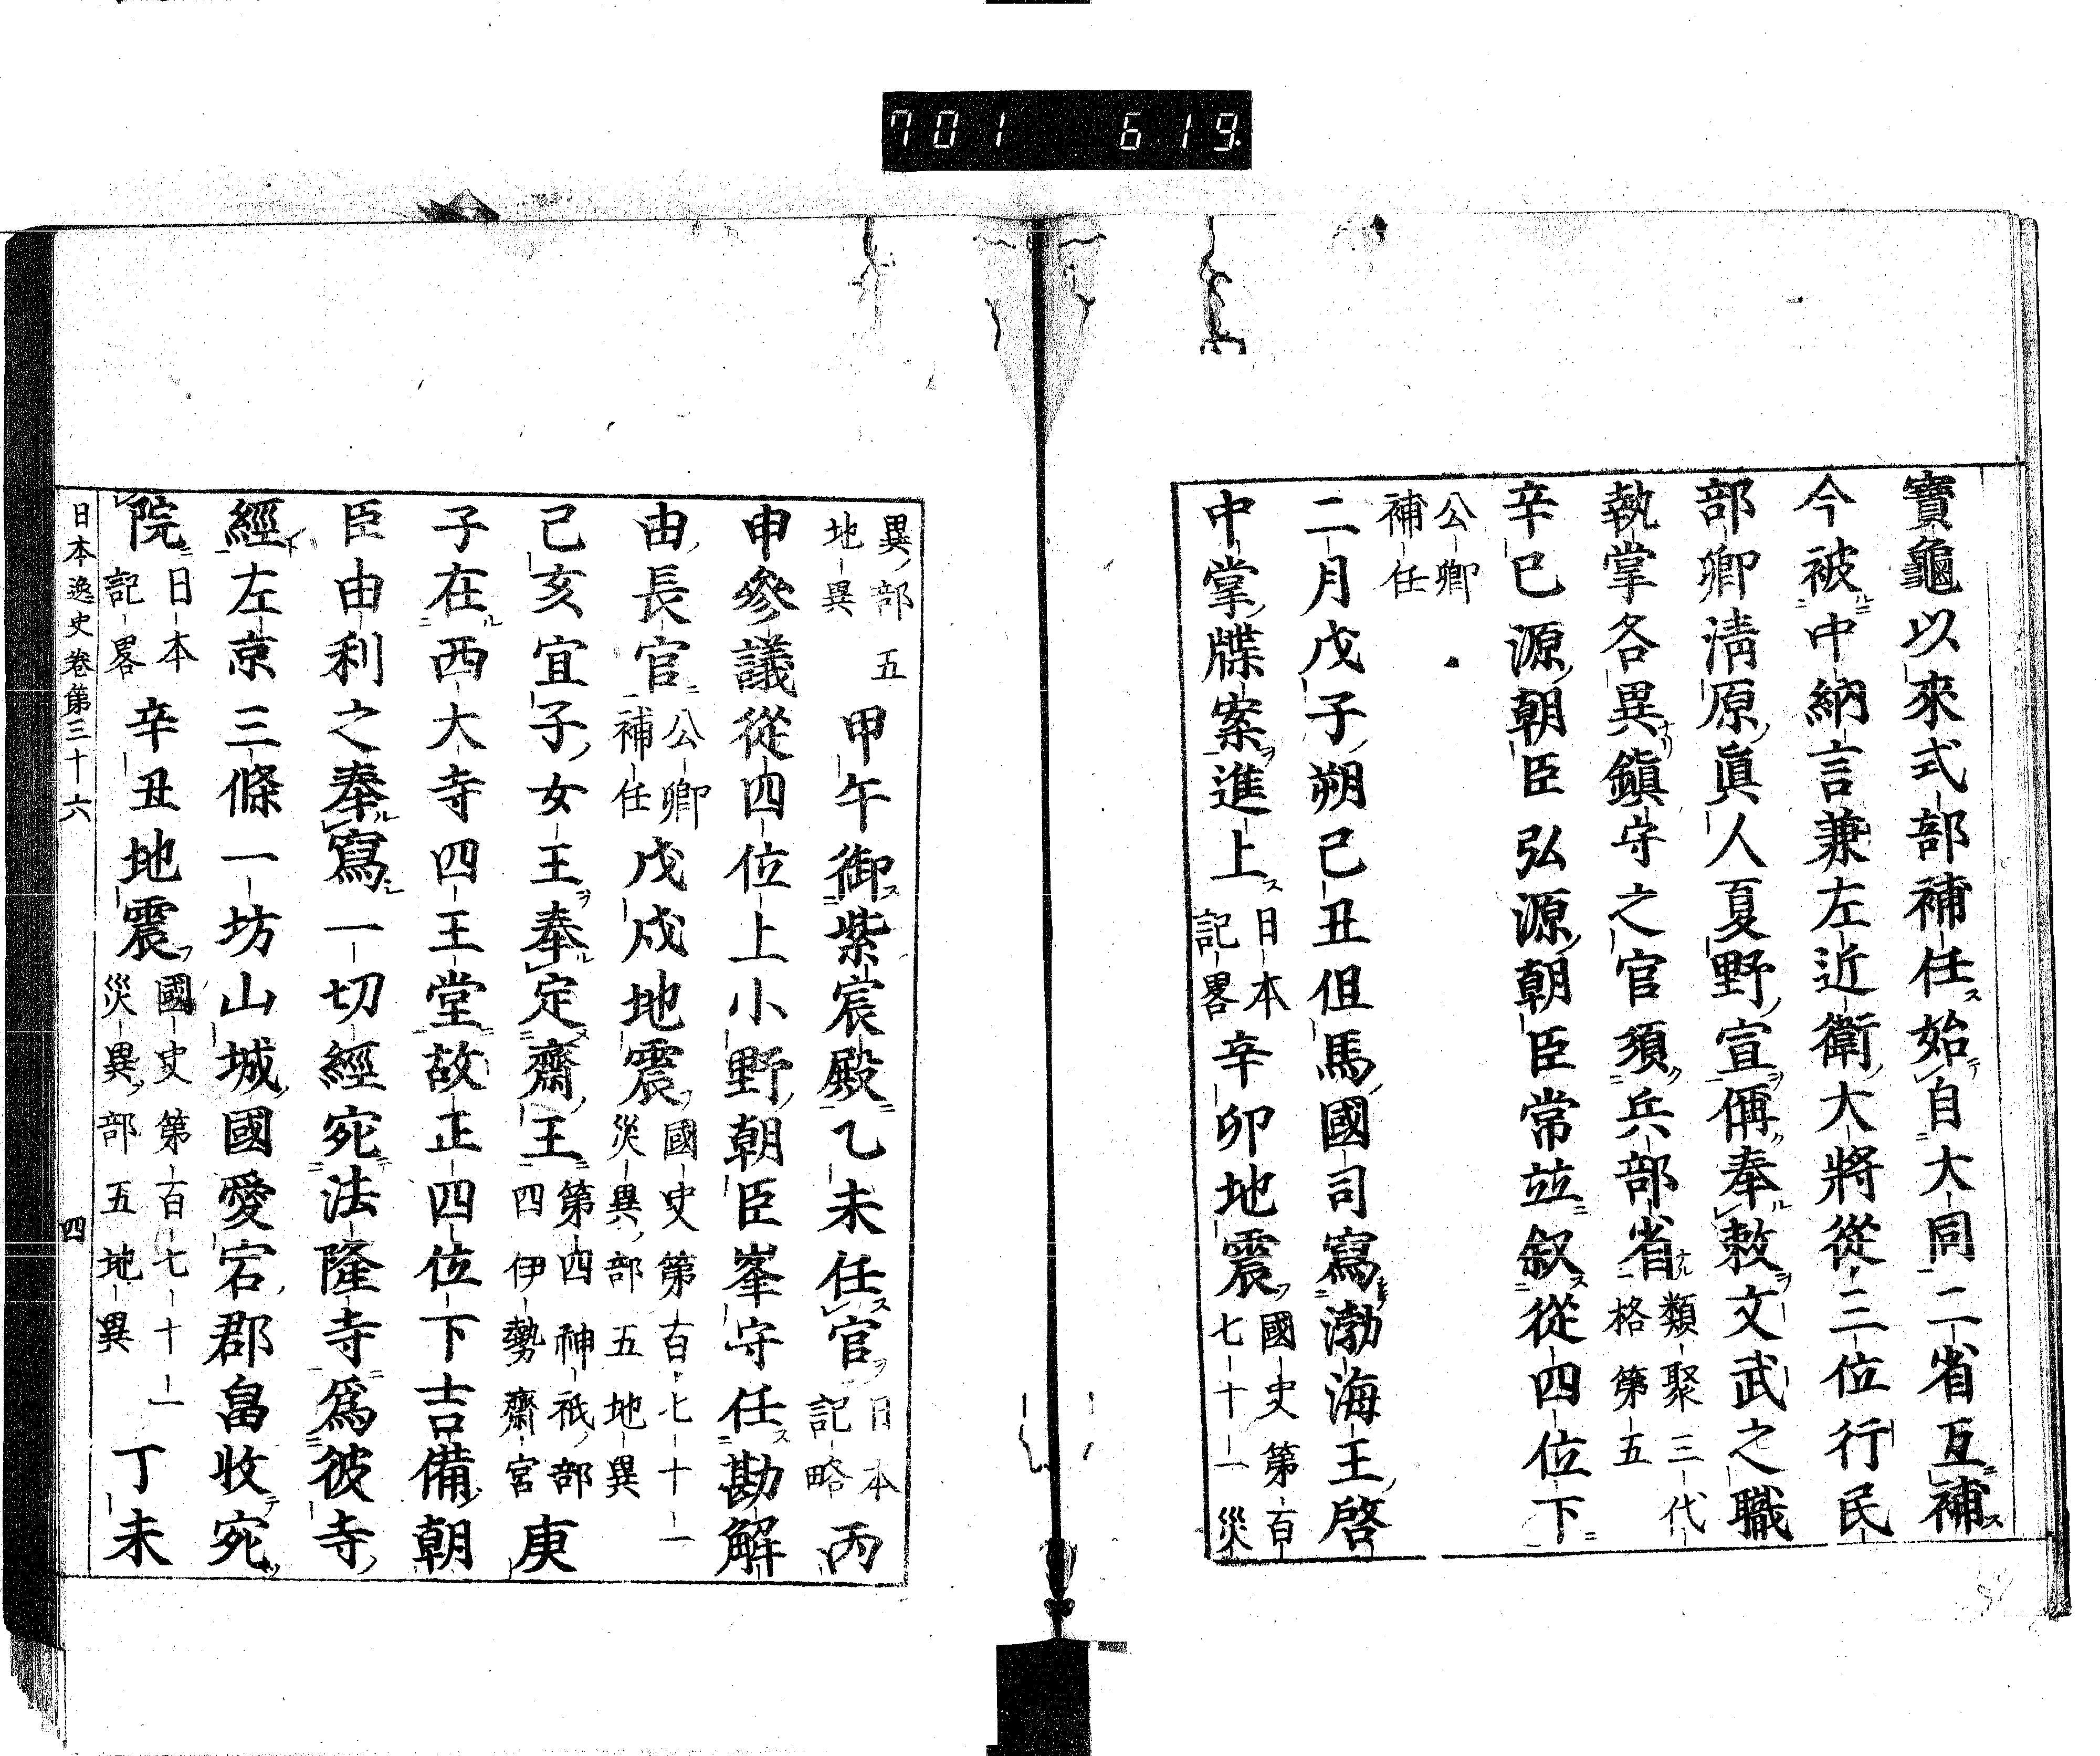 701 619
寶龜以來式部補任始自大同二省互補
今被中納言兼左近衛大將從三位行民
部卿淸原眞人夏野宣偁奉敕文武之職
執掌各異鎭守之官須兵部省類聚三代
格第五
辛巳源朝臣弘源朝臣常竝叙從四位下
公卿
補任
二月戊子朔己丑但馬國司寫渤海王啓
中掌牒案進上日本
記畧辛卯地震國史第百
七十一災
異部五
地異甲午御紫宸殿乙未任官日本
記略丙
申參議從四位上小野朝臣峯守任勘解
由長官公卿
補任戊戌地震國史第百七十一
災異部五地異
己亥宜子女王奉定齋王第四神祇部
四伊勢齋宮庚
子在西大寺四王堂故正四位下吉備朝
臣由利之奉寫一切經宛法隆寺爲彼寺
經左京三條一坊山城國愛宕郡畠收宛
院日本
記畧辛丑地震國史第百七十一
災異部五地異丁未
日本逸史卷第三十六 四